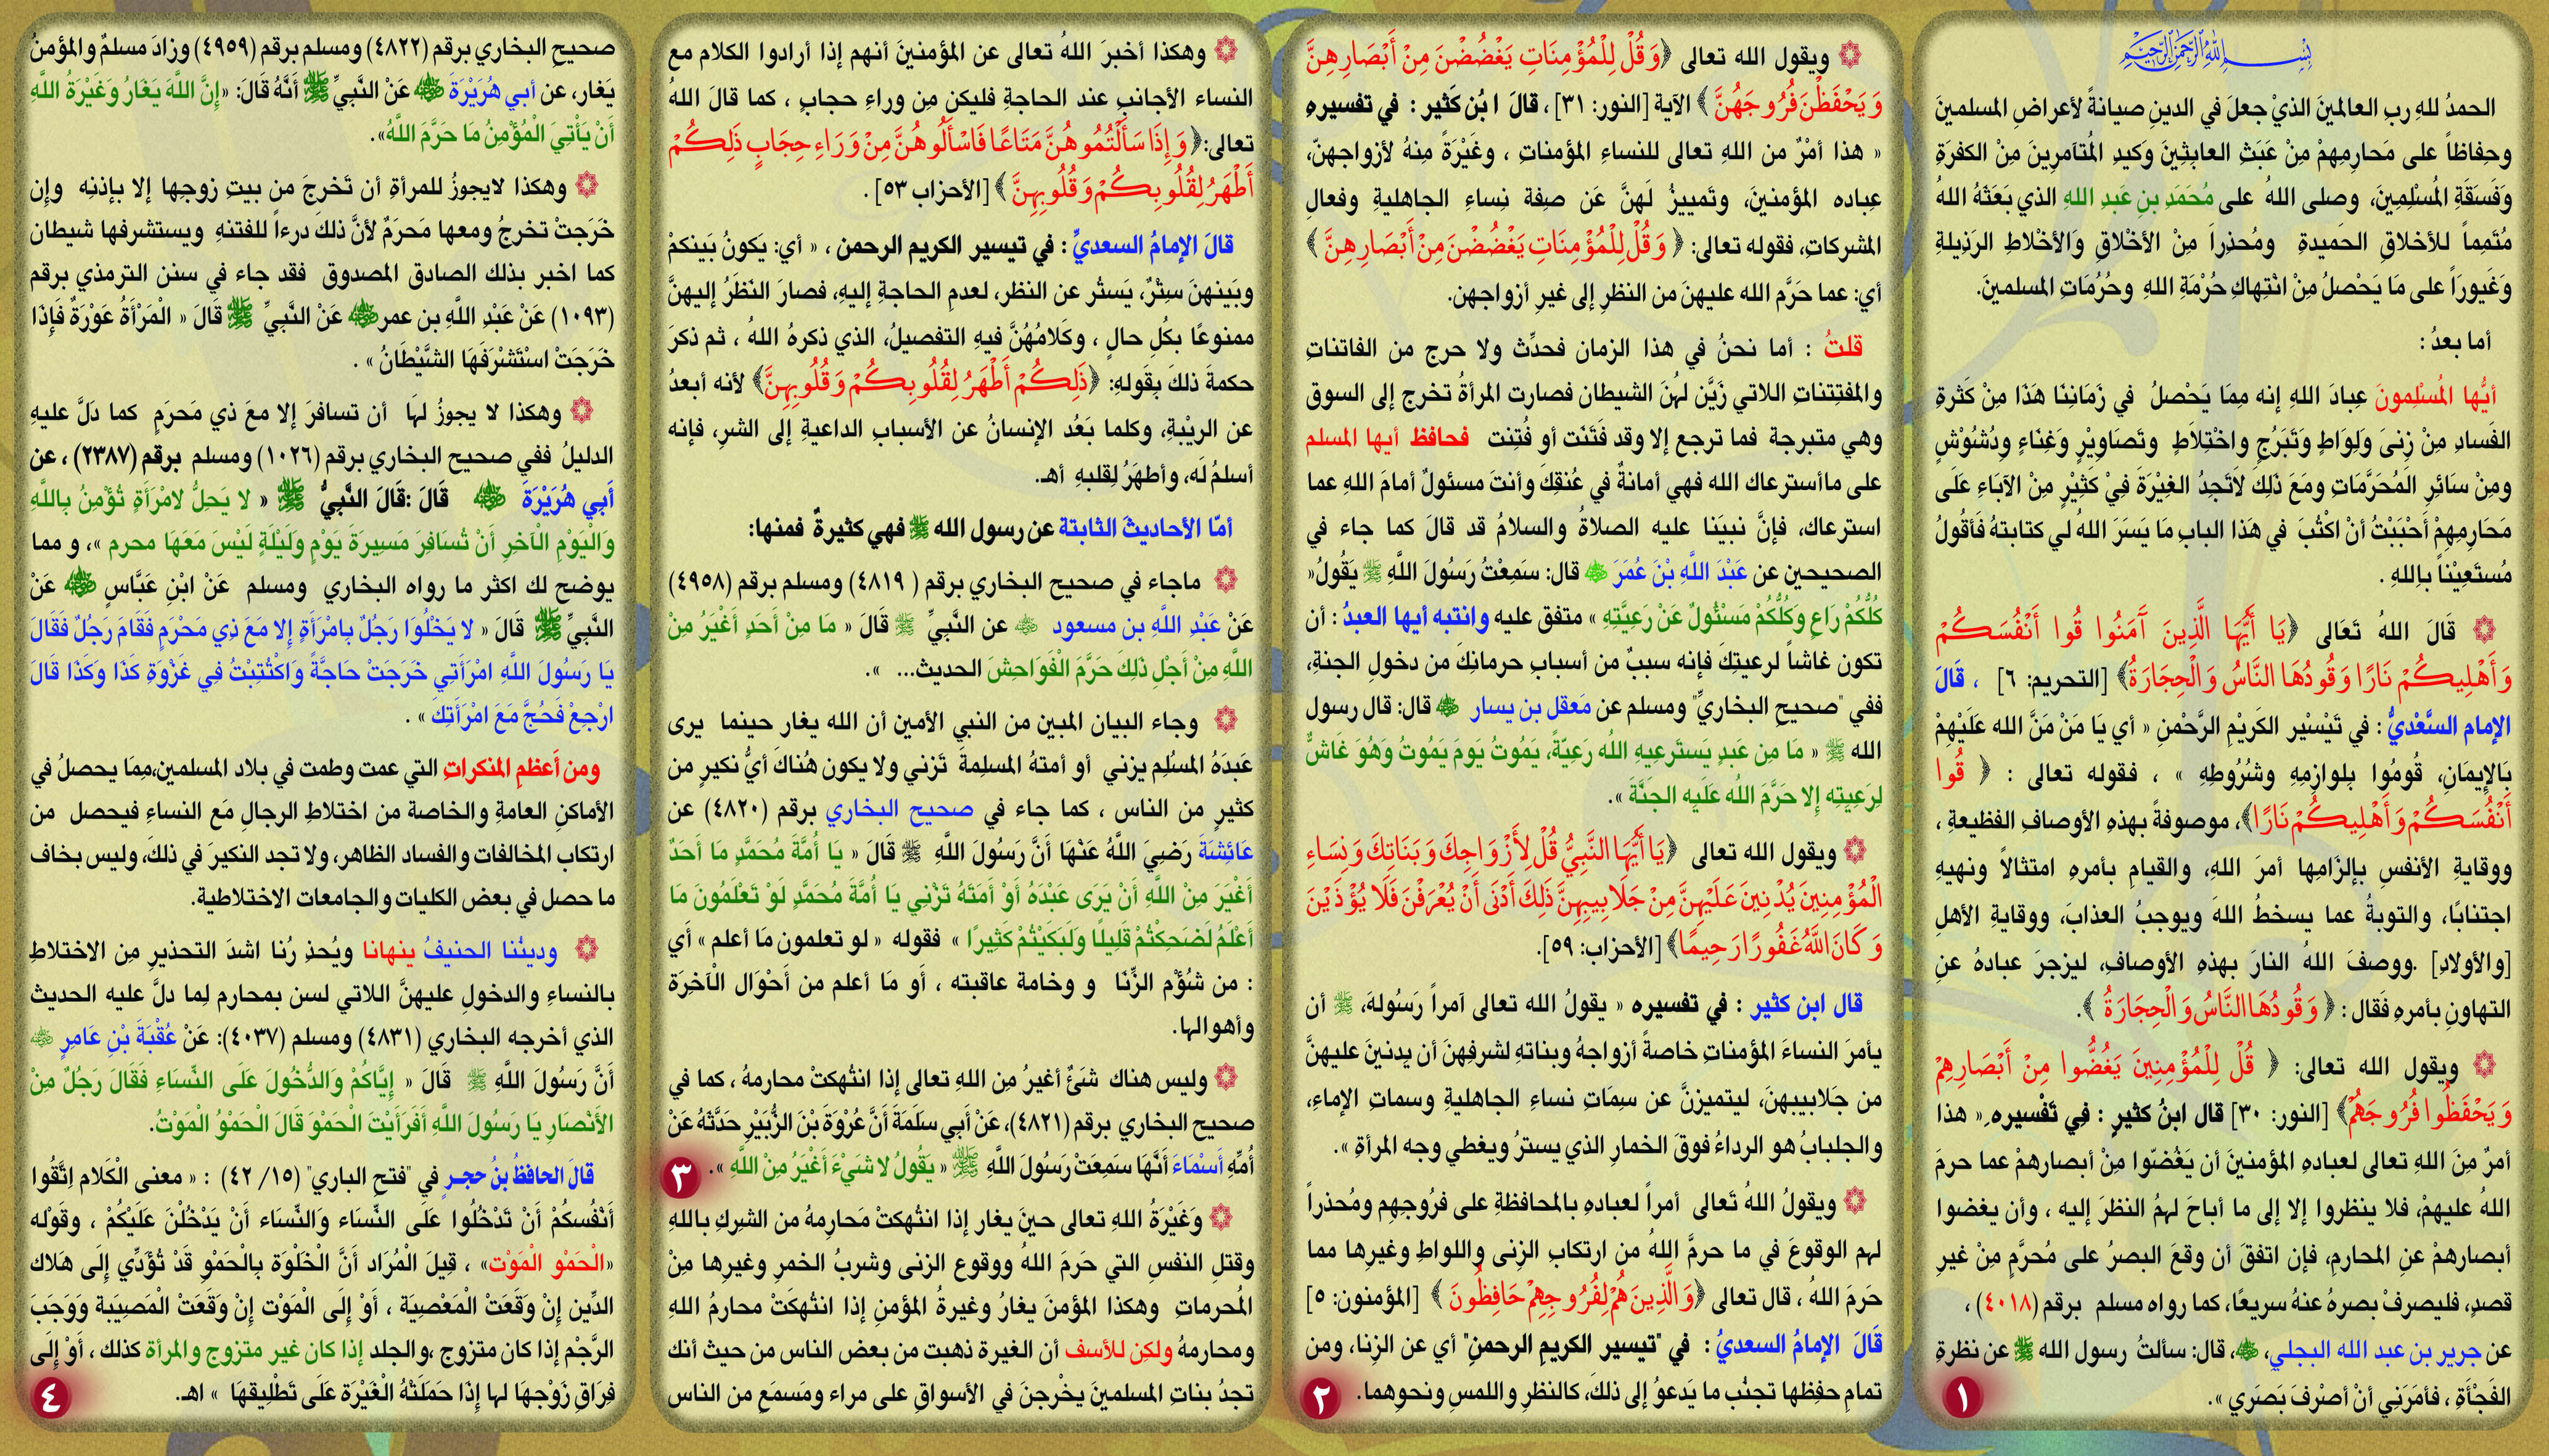 بسم الله الرحمن الرحيم
الحمدُ للهِ ربِ العالمينَ الذيْ جعلَ في الدينِ صيانةً لأعراضِ المسلمينَ
وحِفاظاً على مَحارِمِهِمْ مِنْ عَبَثِ العابِثِينَ وَكيدِ المُتآمرِينَ مِنْ الكفرَةِ
وَفَسَقَةِ المُسْلِمِينَ، وصلى اللهُ على مُحَمَدِ بنِ عَبدِ اللهِ الذي بَعَثَهُ اللهُ
مُتَمِماً للأخلاقِ الحَميدةِ ومُحذِراً مِنْ الأخْلاقِ وَالأخْلاطِ الرَذِيلةِ
وَغَيُورَاً على مَا يَحْصلُ مِنْ انْتِهاكِ حُرْمَةِ اللهِ وحُرُمَاتِ المسلمينَ.
أما بعدُ :
أيُّها المُسْلِمونَ عِبادَ اللهِ إنه مِمَا يَحْصلُ في زَمَانِنَا هَذَا مِنْ كَثرةِ
الفَسادِ مِنْ زِنىَ وَلِوَاطٍ وَتَبَرُجٍ واخْتِلاَطٍ وتَصَاوِيْرٍ وَغِنَاءٍ ودُشُوْشٍ
ومِنْ سَائرِ المُحَرَّمَاتِ ومَعَ ذَلِكَ لاَتَجِدُ الغِيْرَةَ فِيْ كَثِيْرٍ مِنْ الآبَاءِ عَلَى
مَحَارِمِهِمْ أَحْبَبْتُ أنْ اكْتُبَ في هَذَا البابِ مَا يَسَرَ اللهُ لي كتابتهُ فَأقُولُ
مُستَعِيْناً بِاللهِ .
۞ قَالَ اللهُ تَعَالى ﴿يَا أَيُّهَا الَّذِينَ آَمَنُوا قُوا أَنْفُسَكُمْ
وَأَهْلِيكُمْ نَارًا وَقُودُهَا النَّاسُ وَالْحِجَارَةُ﴾ [التحريم: ٦] ، قَالَ
الإمام السَّعْديُّ : في تَيْسِيْر الكَريْمِ الرَّحْمنِ « أي يَا مَنْ مَنَّ الله عَلَيْهِمْ
بَالإيمَانِ، قُومُوا بلوازِمِهِ وشُرُوطِهِ » ، فقوله تعالى : ﴿ قُوا
أَنْفُسَكُمْ وَأَهْلِيكُمْ نَارًا﴾، موصوفةً بهذهِ الأوصافِ الفظيعةِ ،
ووقايةِ الأنفسِ بإلزَامِها أمرَ اللهِ، والقيامِ بأمرهِ امتثالاً ونهيهِ
اجتنابًا، والتوبةُ عما يسخطُ اللهَ ويوجبُ العذابَ، ووقايةِ الأهلِ
[والأولادِ] .ووصفَ اللهُ النارَ بهذهِ الأوصافِ، ليزجرَ عبادهُ عنِ
التهاونِ بأمرهِ فَقال : ﴿ وَقُودُهَا النَّاسُ وَالْحِجَارَةُ ﴾.
۞ ويقول الله تعالى: ﴿ قُلْ لِلْمُؤْمِنِينَ يَغُضُّوا مِنْ أَبْصَارِهِمْ
وَيَحْفَظُوا فُرُوجَهُمْ﴾ [النور: ٣٠] قال ابنُ كثيرٍ : فِي تَفْسيرهِ « هذا
أمرٌ مِنَ اللهِ تعالى لعبادهِ المؤمنينَ أن يَغُضّوا مِنْ أبصارهمْ عما حرمَ
اللهُ عليهمْ، فلا ينظروا إلا إلى ما أباحَ لهمُ النظرَ إليه ، وأن يغضوا
أبصارهمْ عنِ المحارمِ، فإن اتفقَ أن وقعَ البصرُ على مُحرَّمٍ مِنْ غيرِ
قصدٍ، فليصرفْ بصرهُ عنهُ سريعًا، كما رواه مسلم برقم (٤٠١٨) ،
عن جرير بن عبد الله البجلي، ﷺ، قال: سألتُ رسول الله ﷺ عن نظرةِ
الفَجْأةِ ، فأمَرَني أنْ أصْرفَ بَصَرَي ».
١
۞ ويقول الله تعالى ﴿وَقُلْ لِلْمُؤْمِنَاتِ يَغْضُضْنَ مِنْ أَبْصَارِهِنَّ
وَيَحْفَظْنَ فُرُوجَهُنَّ ﴾ الآية [النور: ٣١] ، قالَ ابْن كَثير : في تفسيرهِ
« هذا أمْرٌ من اللهِ تعالى للنساءِ المؤمناتِ ، وغَيْرَةً مِنهُ لأزواجهنّ،
عِباده المؤمنينَ، وتَمييزٌ لَهنَّ عَن صِفة نِساءِ الجاهليةِ وفعالِ
المشركاتِ، فقوله تعالى: ﴿ وَقُلْ لِلْمُؤْمِنَاتِ يَغْضُضْنَ مِنْ أَبْصَارِهِنَّ ﴾
أي: عما حَرَّم الله عليهنَ من النظرِ إلى غيرِ أزواجهن.
قلتُ : أما نحنُ في هذا الزمان فحدِّث ولا حرج من الفاتناتِ
والمفتِتناتِ اللاتي زَيَّن لهُنَ الشيطان فصارت المرأةُ تخرج إلى السوق
وهي متبرجة فما ترجع إلا وقد فتَنَت أو فُتِنت فحافظ أيها المسلم
على ماأسترعاك الله فهي أمانةٌ في عُنقِكَ وأنتَ مسئولٌ أمامَ اللهِ عما
استرعاك، فإنَّ نبيَنا عليه الصلاةُ والسلامُ قد قالَ كما جاء في
الصحيحين عن عَبْدَ اللَّهِ بْنَ عُمَرَ قال: سَمِعْتُ رَسُولَ اللَّهِ ﷺ يَقُولُ«
كُلُّكُمْ رَاعٍ وَكُلُّكُمْ مَسْئُولٌ عَنْ رَعِيَّتِهِ » متفق عليه وانتبه أيها العبدُ : أن
تكون غاشاً لرعيتِكَ فإنه سببٌ من أسبابِ حرمانِكَ من دخولِ الجنةِ،
ففي "صحيحِ البخاريِّ" ومسلم عن مَعقل بن يسار قال: قال رسول
الله ﷺ « مَا مِن عَبدٍ يَستَرعِيهِ الله رَعِيّةً، يَمُوتُ يَومَ يَمُوتُ وَهُوَ غَاشٌّ
لِرَعِيتِه إِلا حَرَّمَ اللهُ عَلَيه الجَنَّةَ ».
۞ ويقول الله تعالى ﴿يَا أَيُّهَا النَّبِيُّ قُلْ لِأَزْوَاجِكَ وَبَنَاتِكَ وَنِسَاءِ
الْمُؤْمِنِينَ يُدْنِينَ عَلَيْهِنَّ مِنْ جَلَابِيبِهِنَّ ذَلِكَ أَدْنَى أَنْ يُعْرَفْنَ فَلَا يُؤْذَيْنَ
وَكَانَ اللَّهُ غَفُورًا رَحِيمًا﴾ [الأحزاب: ٥٩].
قال ابن كثير : في تفسيره « يقولُ الله تعالى آمراً رَسُولهَ، ﷺ أن
يأمرَ النساءَ المؤمناتِ خاصةً أزواجهُ وبناتهِ لشرفِهنَ أن يدنينَ عليهنَّ
من جَلابيبهنَ، ليتميزنَّ عن سِمَاتِ نساءِ الجاهليةِ وسماتِ الإماءِ،
والجلبابُ هو الرداءُ فوقَ الخمارِ الذي يسترُ ويغطي وجه المرأةِ ».
۞ ويقولُ اللهُ تَعالى أمراً لعباده بالمحافظةِ على فرُوجهِم ومُحذراً
لهم الوقوعَ في ما حرمَّ اللهُ من ارتكابِ الزِنى واللواطِ وغيرِها مما
حَرَمَ اللهُ ، قال تعالى ﴿وَالَّذِينَ هُمْ لِفُرُوجِهِمْ حَافِظُونَ ﴾ [المؤمنون: ٥]
قَالَ الإمامُ السعديُ : في "تيسير الكريمِ الرحمنِ" أي عن الزِنا، ومن
تمامِ حفِظها تجنُب ما يَدعوُ إلى ذلكَ، كالنظرِ واللمسِ ونحوِهما.
٢
۞ وهكذا أخبرَ اللهُ تعالى عن المؤمنينَ أنهم إذا أرادوا الكلام مع
النساء الأجانبِ عند الحاجةِ فليكنِ مِن وراءِ حجابٍ ، كما قالَ اللهُ
تعالى:﴿ وَإِذَا سَأَلْتُمُوهُنَّ مَتَاعًا فَاسْأَلُوهُنَّ مِنْ وَرَاءِ حِجَابٍ ذَلِكُمْ
أَطْهَرُ لِقُلُوبِكُمْ وَقُلُوبِهِنَّ ﴾ [الأحزاب ٥٣] .
قالَ الإمامُ السعديِّ : في تيسير الكريم الرحمن ، « أي: يَكونُ بَينكمْ
وبَينهنَ سِتْرٌ، يَستُر عن النظر، لعدمِ الحاجةِ إليهِ، فصارَ النَظرُ إليهنَّ
ممنوعًا بكُلِ حالٍ ، وكَلامُهُنَّ فيهِ التفصيلُ، الذي ذكرهُ اللهُ ، ثم ذكرَ
حكمةَ ذلكَ بِقَولهِ: ﴿ذَلِكُمْ أَطْهَرُ لِقُلُوبِكُمْ وَقُلُوبِهِنَّ﴾ لأنه أبعدُ
عن الريْبةِ، وكلما بَعُد الإنسانُ عن الأسبابِ الداعيةِ إلى الشرِ، فإنه
أسلمُ لَه، وأطهَرُ لِقلبهِ أهـ.
أمّا الأحاديثَ الثابتة عن رسول الله ﷺ فهي كثيرةٌ فمنها:
۞ ماجاء في صحيح البخاري برقم ( ٤٨١٩) ومسلم برقم (٤٩٥٨)
عَنْ عَبْدِ اللَّهِ بن مسعود عن النَّبِيِّ ﷺ قَالَ « مَا مِنْ أَحَدٍ أَغْيَرُ مِنْ
اللَّهِ مِنْ أَجْلِ ذَلِكَ حَرَّمَ الْفَوَاحِشَ الحديث... ».
۞ وجاء البيان المبين من النبي الأمين أن الله يغار حينما يرى
عَبدَهُ المسُلِم يزني أو أمتهُ المسلِمةَ تَزني ولا يكون هُناكَ أيُّ نكيرٍ من
كثيرٍ من الناس ، كما جاء في صحيح البخاري برقم (٤٨٢٠) عن
عَائِشَةَ رَضِيَ اللَّهُ عَنْهَا أَنَّ رَسُولَ اللَّهِ ﷺ قَالَ « يَا أُمَّةَ مُحَمَّدٍ مَا أَحَدٌ
أَغْيَرَ مِنْ اللَّهِ أَنْ يَرَى عَبْدَهُ أَوْ أَمَتَهُ تَزْنِي يَا أُمَّةَ مُحَمَّدٍ لَوْ تَعْلَمُونَ مَا
أَعْلَمُ لَضَحِكْتُمْ قَلِيلًا وَلَبَكَيْتُمْ كَثِيرًا » فقوله « لو تعلمون مَا أعلم » أي
: من شُؤْم الزِّنَا و وخامة عاقبته ، أَو مَا أعلم من أَحْوَال الْآخِرَة
وأهوالها.
۞ وليس هناك شَئٌ أغيرُ مِن اللهِ تعالى إذا انتُهكتْ محارمهُ ، كما في
صحيح البخاري برقم (٤٨٢١)، عَنْ أَبِي سَلَمَةَ أَنَّ عُرْوَةَ بْنَ الزُّبَيْرِ حَدَّثَهُ عَنْ
أُمِّهِ أَسْمَاءَ أَنَّهَا سَمِعَتْ رَسُولَ اللَّهِ ﷺ « يَقُولُ لا شَيْءَ أَغْيَرُ مِنْ اللَّهِ ».
٣
۞ وَغَيْرَةُ اللهِ تعالى حينَ يغار إذا انتُهكتْ مَحارِمهُ من الشِركِ باللهِ
وقتلِ النفسِ التي حَرَمَ اللهُ ووقوع الزنى وشربُ الخمرِ وغيرِها مِنْ
المُحرماتِ وهكذا المؤمنَ يغارُ وغيرةُ المؤمنِ إذا انتُهكَتْ محارمُ اللهِ
ومحارمهُ ولكِن للأسف أن الغيرة ذهبت من بعض الناس من حيث أنك
تجدُ بناتِ المسلمينَ يخْرجنَ في الأسواقِ على مراء ومَسمَعٍ من الناس
صحيحِ البخاري برقم (٤٨٢٢) ومسلم برقم (٤٩٥٩) وزادَ مسلمٌ والمؤمنُ
يَغار، عن أبي هُرَيْرَةَ عَنْ النَّبِيِّ ﷺ أَنَّهُ قَالَ: «إِنَّ اللَّهَ يَغَارُ وَغَيْرَةُ اللَّهِ
أَنْ يَأْتِيَ الْمُؤْمِنُ مَا حَرَّمَ اللَّهُ».
۞ وهكذا لايجوزُ للمرأةِ أن تَخرجَ من بيتِ زوجِها إلا بإذنِه وإن
خَرَجتْ تخرجُ ومعها مَحرَمٌ لأنَّ ذلكَ درءاً للفتنهِ ويستشرفها شيطان
كما اخبر بذلك الصادق المصدوق فقد جاء في سنن الترمذي برقم
(١٠٩٣) عَنْ عَبْدِ اللَّهِ بن عمر عَنْ النَّبِيِّ ﷺ قَالَ « الْمَرْأَةُ عَوْرَةٌ فَإِذَا
خَرَجَتْ اسْتَشْرَفَهَا الشَّيْطَانُ » .
۞ وهكذا لا يجوزُ لهَا أن تسافرَ إلا معَ ذي مَحرَمٍ كما دَلَّ عليهِ
الدليلُ ففي صحيح البخاري برقم (١٠٢٦) ومسلم برقم (٢٣٨٧) ، عن
أَبِي هُرَيْرَةَ قَالَ :قَالَ النَّبِيُّ ﷺ « لا يَحِلُّ لامْرَأَةٍ تُؤْمِنُ بِاللَّهِ
وَالْيَوْمِ الْآخِرِ أَنْ تُسَافِرَ مَسِيرَةَ يَوْمٍ وَلَيْلَةٍ لَيْسَ مَعَهَا محرم »، و مما
يوضح لك اكثر ما رواه البخاري ومسلم عَنْ ابْنِ عَبَّاسٍ عَنْ
النَّبِيِّ ﷺ قَالَ « لا يَخْلُوَا رَجُلٌ بِامْرَأَةٍ إِلا مَعَ ذِي مَحْرَمٍ فَقَامَ رَجُلٌ فَقَالَ
يَا رَسُولَ اللَّهِ امْرَأَتِي خَرَجَتْ حَاجَّةً وَاكْتُتِبْتُ فِي غَزْوَةِ كَذَا وَكَذَا قَالَ
ارْجِعْ فَحُجَّ مَعَ امْرَأَتِكَ » .
ومن أَعظمِ المنكراتِ التي عمت وطمت في بلاد المسلمين،مِمَا يحصلُ في
الأماكنِ العامةِ والخاصة من اختلاطِ الرجالِ مَع النساءِ فيحصل من
ارتكاب المخالفات والفساد الظاهر، ولا تجد النكيرَ في ذلكَ، وليس بخاف
ما حصل في بعض الكليات والجامعات الاختلاطية.
۞ ودينُنا الحنيفُ ينهانا ويُحذِ رُنا اشدَ التحذيرِ مِن الاختلاطِ
بالنساءِ والدخولِ عليهنَّ اللاتي لسن بمحارم لِما دلَّ عليه الحديث
الذي أخرجه البخاري (٤٨٣١) ومسلم (٤٠٣٧): عَنْ عُقْبَةَ بْنِ عَامِرٍ
أَنَّ رَسُولَ اللَّهِ ﷺ قَالَ « إِيَّاكُمْ وَالدُّخُولَ عَلَى النِّسَاءِ فَقَالَ رَجُلٌ مِنْ
الأَنْصَارِ يَا رَسُولَ اللَّهِ أَفَرَأَيْتَ الْحَمْوَ قَالَ الْحَمْوُ الْمَوْتُ.
قالَ الحافظُ بنُ حجـرٍ في "فتح الباري" (١٥/ ٤٢) : « معنى الْكَلام اِتَّقُوا
أَنْفُسكُمْ أَنْ تَدْخُلُوا عَلَى النِّسَاء وَالنِّسَاء أَنْ يَدْخُلْنَ عَلَيْكُمْ ، وقَوْله
«الْحَمْو الْمَوْت» ، قِيلَ الْمُرَاد أَنَّ الْخَلْوَة بِالْحَمْوِ قَدْ تُؤَدِّي إِلَى هَلاك
الدِّين إِنْ وَقَعَتْ الْمَعْصِيَة ، أَوْ إِلَى الْمَوْت إِنْ وَقَعَتْ الْمَصِيَبة وَوَجَبَ
الرَّجْم إذا كان متزوج ،والجلد إذا كان غير متزوج والمرأة كذلك ، أَوْ إِلَى
فِرَاقِ زَوْجهَا لها إِذَا حَمَلَتْهُ الْغَيْرَة عَلَى تَطْلِيقهَا » اهـ.
٤